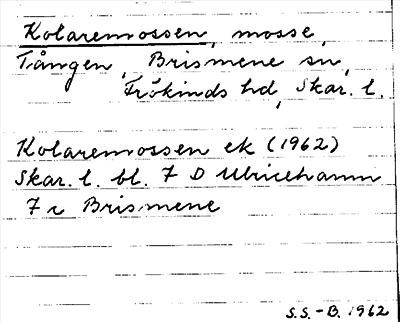 Kolaremossen, mosse,
Tången, Brismene sn,
Frökinds hd, Skar. l.
Kolaremossen ek (1962)
Skar. l. bl. 7 D Ulricehamn
7 c Brismene
S.S.-B. 1962